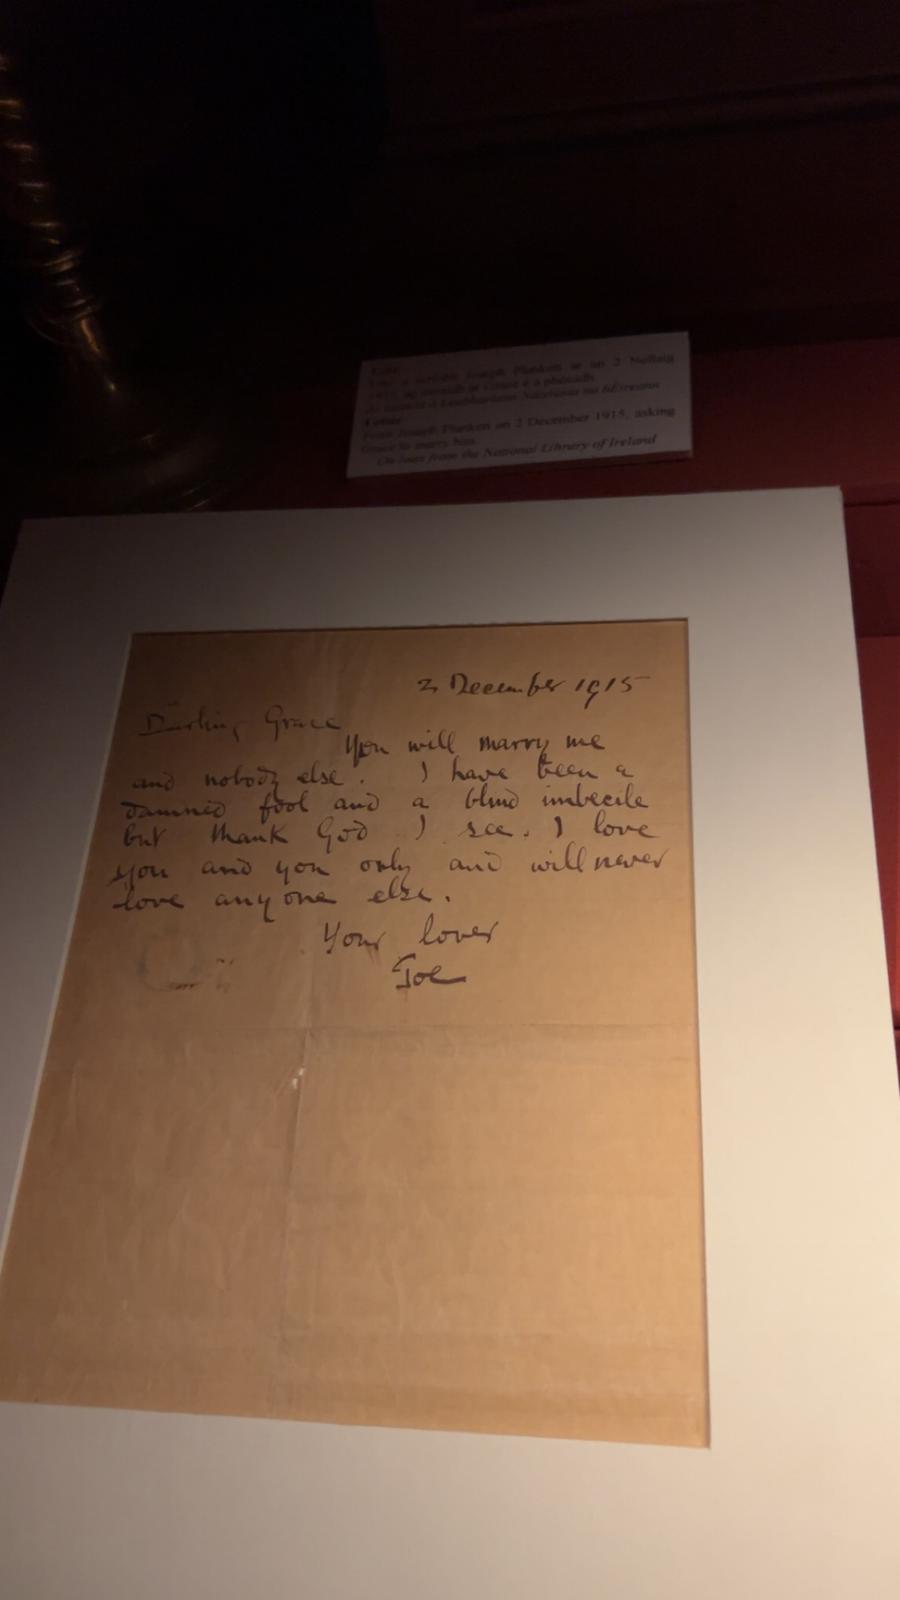 Litir
1915, ag iarraidh ar Grace é a phósadh.
Ar iasacht ó Leabharlann Náisiúnta na hÉireann
Letter
From Joseph Plunkett on 2 December 1915, asking
Grace to marry him.
On loan from the National Library of Ireland
2 December 1915
Darling Grace
You will marry me
and nobody else. I have been a
damned fool and a blind imbecile
but thank God I see. I love
you and you only and will never
love anyone else.
Your lover
Joe